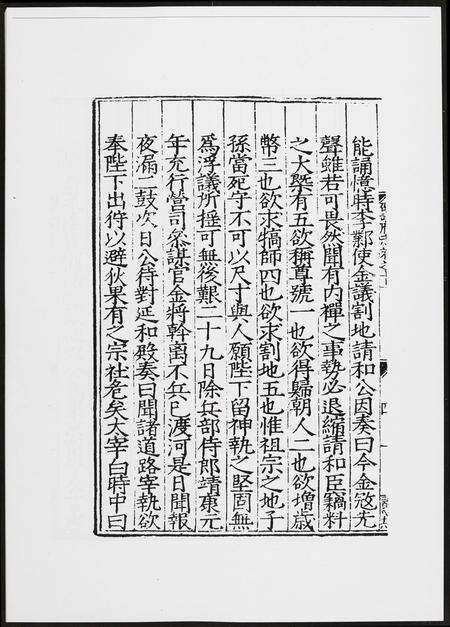 能誦憶時李鄴使金議割地請和公因奏曰今金寇先
聲雖若可畏然聞有内禪之事勢必退縮請和臣竊料
之大槩有五欲稱尊號一也欲得歸朝人二也欲增歲
幣三也欲求犒師四也欲求割地五也惟祖宗之地子
孫當死守不可以尺寸與人願陛下留神執之堅固無
爲浮議所揺可無後艱二十九日除兵部侍郎靖康元
年充行營司叅謀官金將幹离不兵已渡河是日聞報
夜漏二鼓次日公待對延和殿奏曰聞諸道路宰執欲
奉陛下出狩以避狄果有之宗社危矣太宰白時中曰